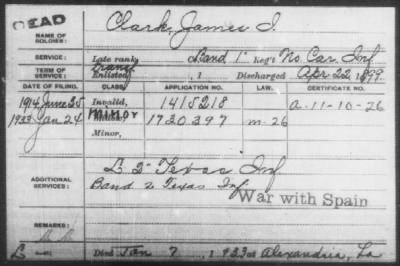 DEAD
NAME OF SOLDIER: Clark, James I.
SERVICE: Late rank, Band 1" Reg't No. Car. Inf
TERM OF SERVICE: Enlisted , 1 Discharged Apr 22, 1899
DATE OF FILING. CLASS. APPLICATION NO. LAW. CERTIFICATE NO.
1914, June 25 Invalid, 1415218 a-11-10-26
1933 Jan 24 1730397 m-26
Minor,
ADDITIONAL SERVICES: L 2" Texas Inf
Band 2 Texas Inf
War with Spain
REMARKS:
Died Jan 7, 1933 at Alexandria, La